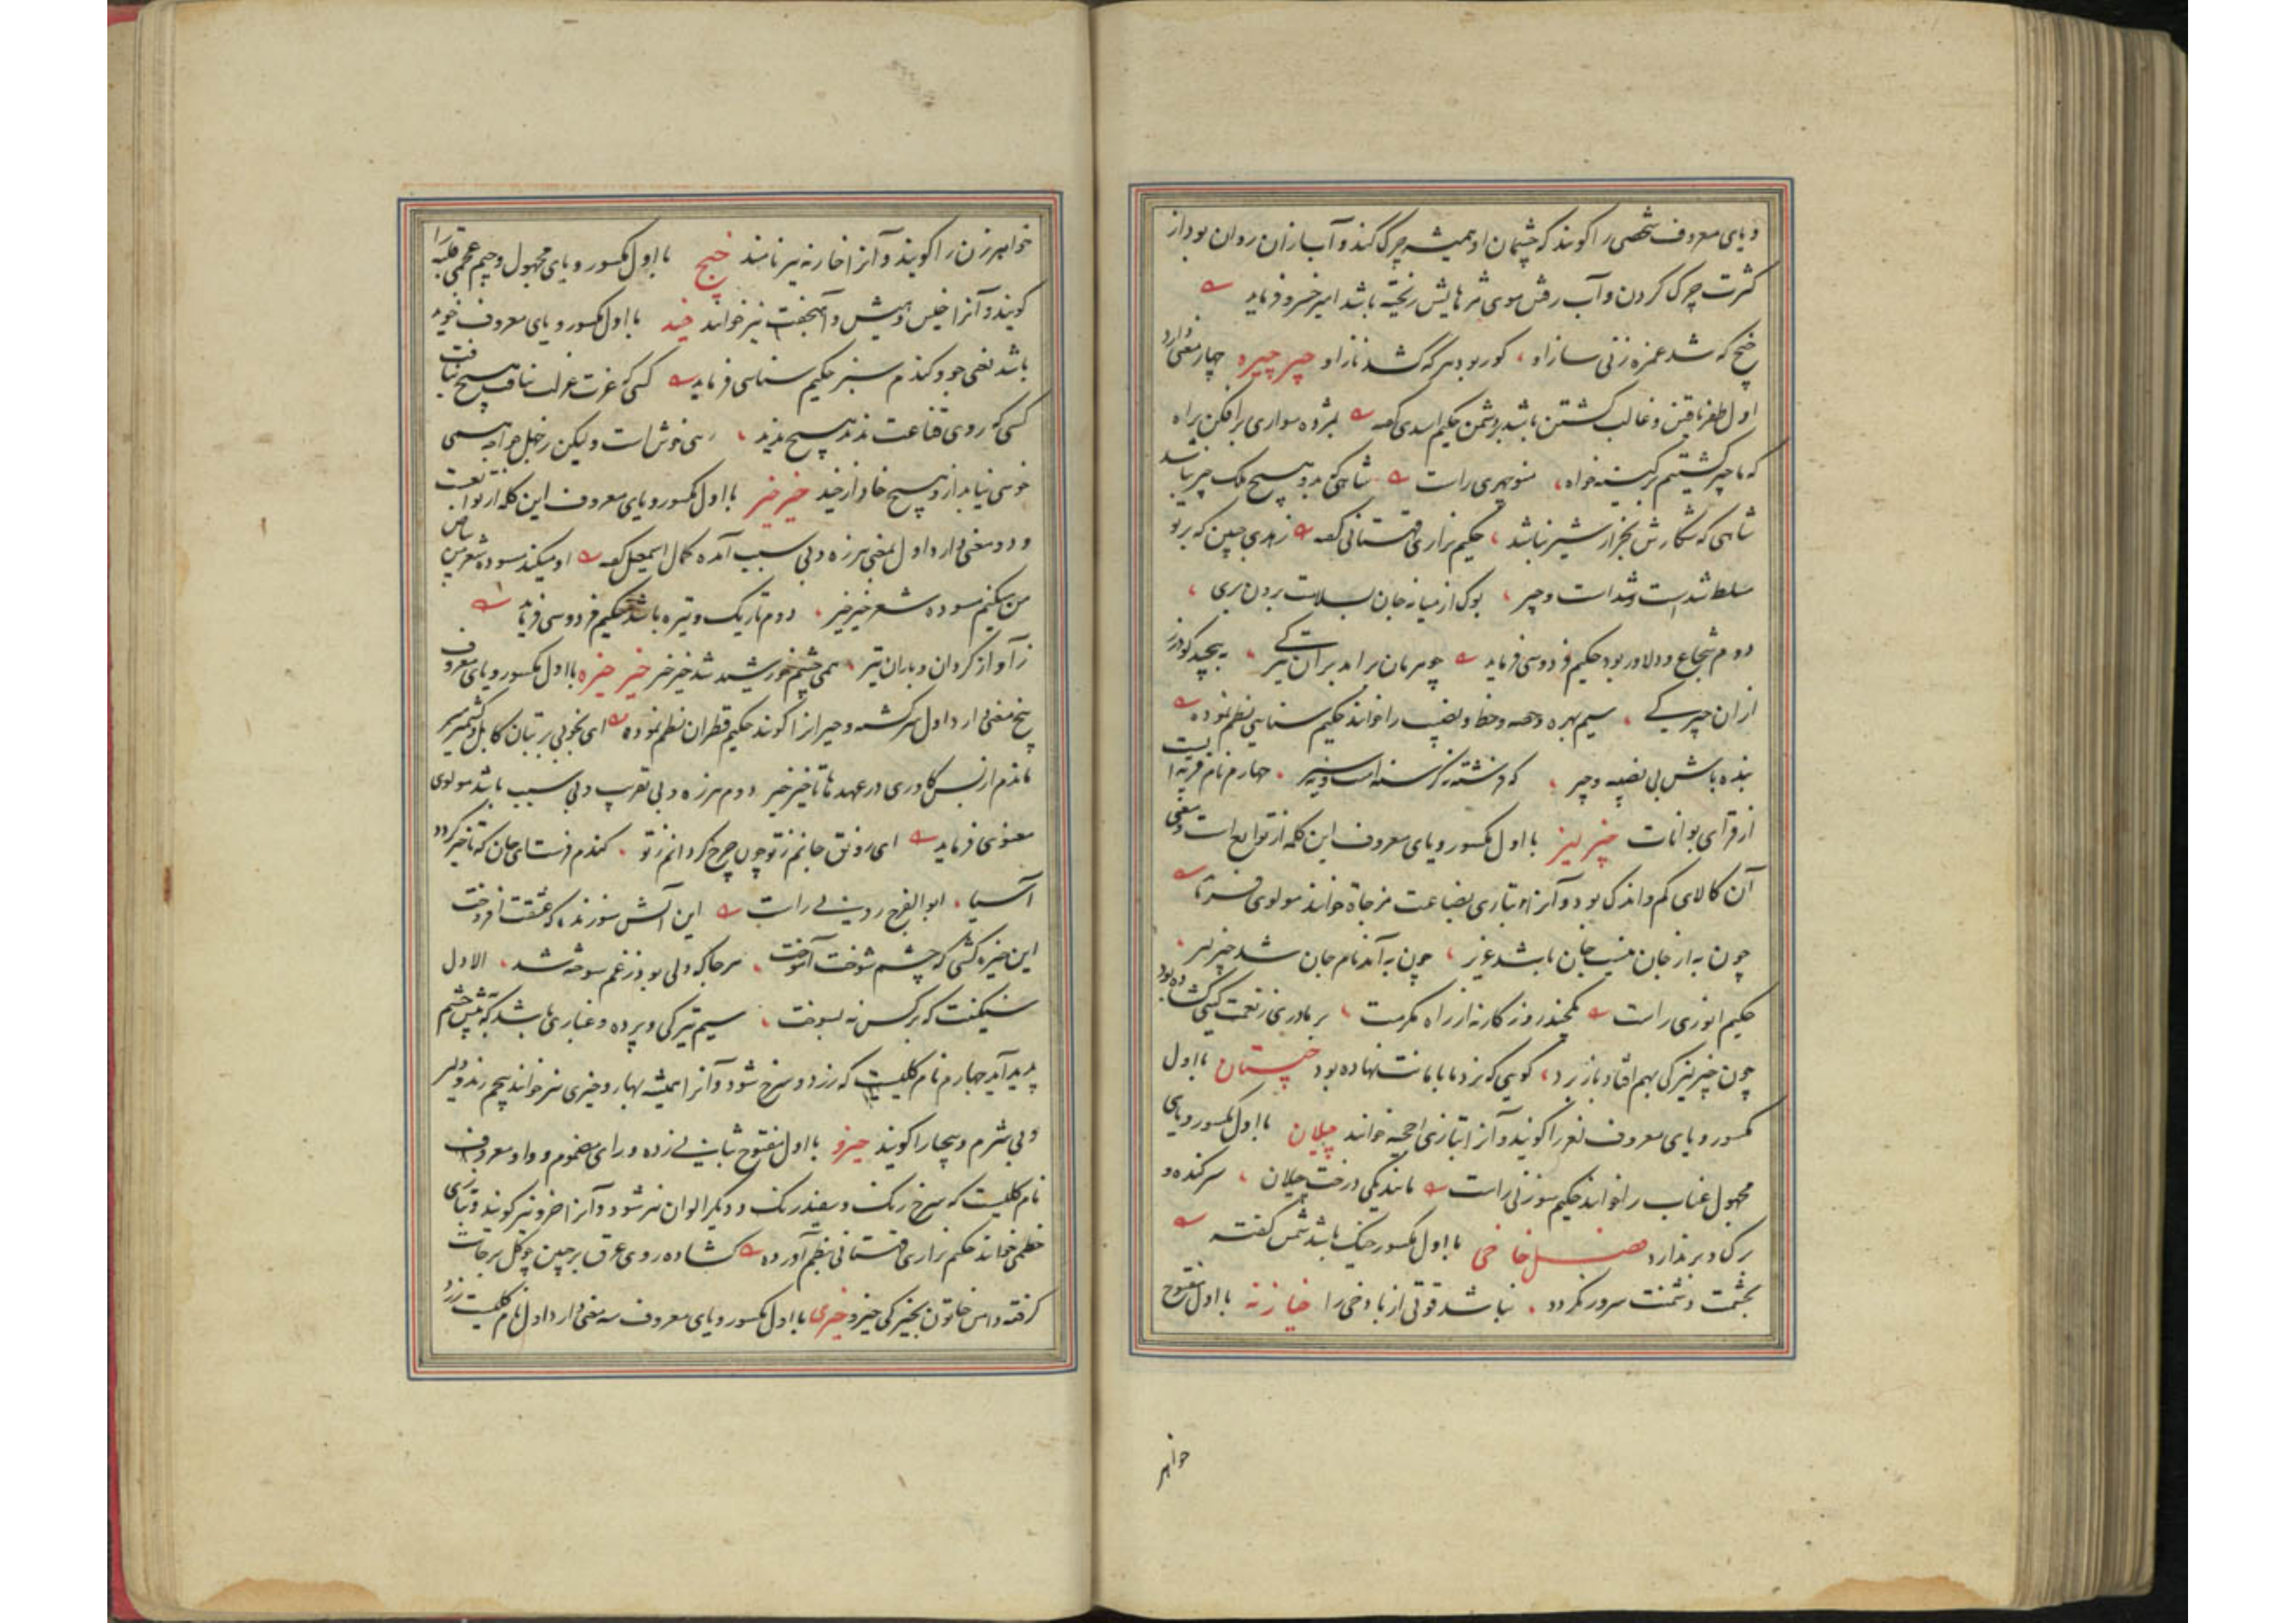 و یای معروف شخصی را کویند که چشمان او همیشه چرک کند و آب ازان روان بود از
کثرت چرک کردن و آب رفتن موی مژهایش ریخته باشد امیر خسرو فرماید
خیچ که شد غمزه زنی ساز او کور بود هر که کشد ناز او چیر چیره چهار معنی دارد
اول ظفر یافتن و غالب کشتن باشد بر دشمن حکیم اسدی کفته بمژده سواری برافکن براه
که ما چیر کشتیم بر کینه خواه منوچهری راست شاهی که برو هیچ ملک چیر نباشد
شاهی که شکارش بجز از شیر نباشد حکیم نزاری قهستانی کفته زهدی چنین که بر تو
مسلط شداست و چیر بوک از میانه جان بسلامت برون بری
دوم شجاع و دلاور بود حکیم فردوسی فرماید چو هرمان براند بران تیر کی بپیچد کودرز
ازان چیر کی سیم بهره و حصه و حظ و نصیب را خوانند حکیم سنایی نظم نموده
بنده باش بی نصیبه و چیر که فرشته نه کرسنه است و نه سیر چهارم نام قریه ایست
از قرای بوانات چیز لیز با اول مکسور و یای معروف این کلمه از توابع است و معنی
آن کالای کم و اندک بود و آنرا بتازی بضاعت مزجاة خوانند مولوی فرماید
چون به از جان نیست جان باشد عزیز چون به آمد نام جان شد چیز لیز
حکیم انوری راست یکچند روزکار نه از راه مکرمت بر ما دری ز نعمت کیتی کشاده بود
چون چیز لیزکی بهم افتاد باز برد کویی که نزد ما بامانت نهاده بود چیستان با اول
مکسور و یای معروف لغز را کویند و آنرا بتازی احجیه خوانند چیلان با اول مکسور و یای
مجهول عناب را خوانند حکیم سوزنی راست مانند یکی درخت چیلان سر کنده و
رک و بر ندارد فصل خا خی با اول مکسور خیک باشد شمس کفته
بخشمت دشمنت سرور نکردد نباشد قوتی از باد خی را خیازنه با اول مفتوح
خواهر
خواهر زن را کویند و آنرا خازنه نیز نامند خیج با اول مکسور و یای مجهول و جیم عجمی قلبه را
کویند و آنرا خلیس و میش و آمیخت نیز خوانند خید با اول مکسور و یای معروف خوید
باشد یعنی جو و کندم سبز حکیم سنایی فرماید کسی که عزت عزلت نیافت هیچ نیافت
کسی که روی قناعت ندید هیچ ندید رهی خوش است ولیکن ز جهل خواجه همی
خوشی نیابد ازو هیچ خاد از خید خیر خیر با اول مکسور و یای معروف این کلمه از توابعست
و دو معنی دارد اول بمعنی هرزه و بی سبب آمده کمال اسمعیل کفته او میکند مسوده شعر پس
من میکنم مسوده شعر خیر خیر دوم تاریک و تیره باشد حکیم فردوسی فرماید
ز آواز کردان و باران تیر همی چشم خورشید شد خیر خیر خیر خیره با اول مکسور و یای معروف
پنج معنی دارد اول سرکشته و حیرانرا کویند حکیم قطران نظم نموده ای بخوبی بر بتان کابل و کشمیر میر
ماندم از بس کاوری در عهد ها تاخیر خیر دوم هرزه و بی تقریب و بی سبب باشد مولوی
معنوی فرماید ای رونق جانم ز تو چون چرخ کردانم ز تو کندم فرست ای جان که تا خیره کردد
آسیا ابوالفرج رونی راست این آتش سوزنده که عشقت افروخت
این خیره کشی که چشم شوخت آموخت هر جا که دلی بود ز غم سوخته شد الا دل
سنکینت که بر کس نه بسوخت سیم تیرکی و پرده و غباری باشد که پیش چشم
پدید آید چهارم نام کلیست که زرد و سرخ شود و آنرا همیشه بهار و خیری نیز خوانند پنجم رند و دلیر
و بی شرم و بیحیا را کویند خیرو با اول مفتوح بثانی زده و رای مضموم و واو معروف
نام کلیست که سرخ رنک و سفید رنک و دیکر الوان نیز شود و آنرا خرو نیز کویند و بتازی
خطمی خوانند حکیم نزاری قهستانی بنظم آورده کشاده روی عرق بر جبین چو کل برخاست
کرفته دامن خاتون بخیرکی خیرو خیری با اول مکسور و یای معروف سه معنی دارد اول نام کلیست زرد